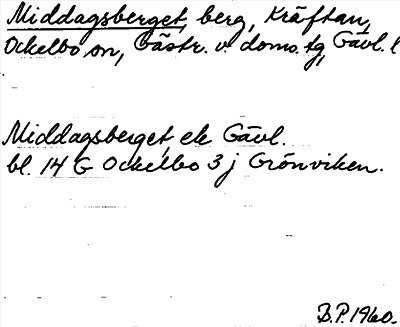 Middagsberget, berg, Kräftan,
Ockelbo sn, Gästr. v. doms. tg, Gävl. l
Middagsberget ek Gävl.
bl. 14 G Ockelbo 3 j Grönviken.
B.P. 1960.